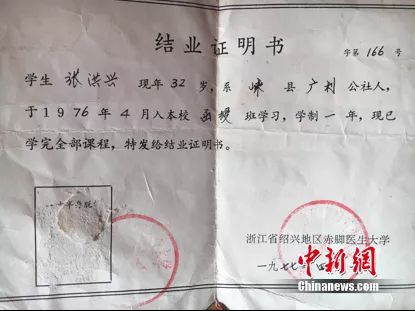 结业证明书
字第 166 号
学生 张洪兴 现年 32 岁，系 嵊 县 广利 公社人，
于 1976 年 4 月入本校 函授 班学习，学制 一 年，现已
学完全部课程，特发给结业证明书。
浙江省绍兴地区赤脚医生大学
一九七七 四
中新网
Chinanews.com